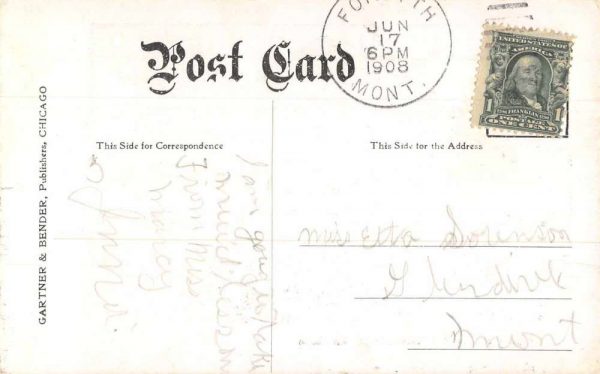 Post Card
FORSYTH
JUN
17
6 PM
1908
MONT.
UNITED STATES OF
AMERICA
1 FRANKLIN 1
POSTAGE
ONE CENT
This Side for Correspondence
This Side for the Address
GARTNER & BENDER, Publishers, CHICAGO
I am going to take
music lesson
From Miss
Miss Etta Sorenson
Glendive
Mont